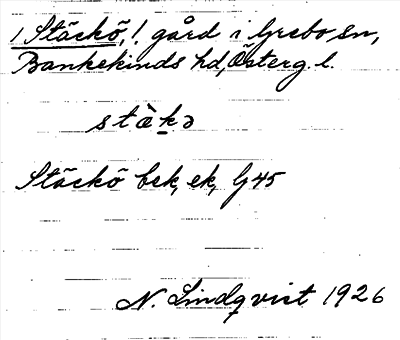 1 Stäckö, l. gård i Grebo sn,
Bankekinds hd, Österg. l.
stæ̀k̠ə
Stäckö bek, ek, G45
N. Lindqvist 1926